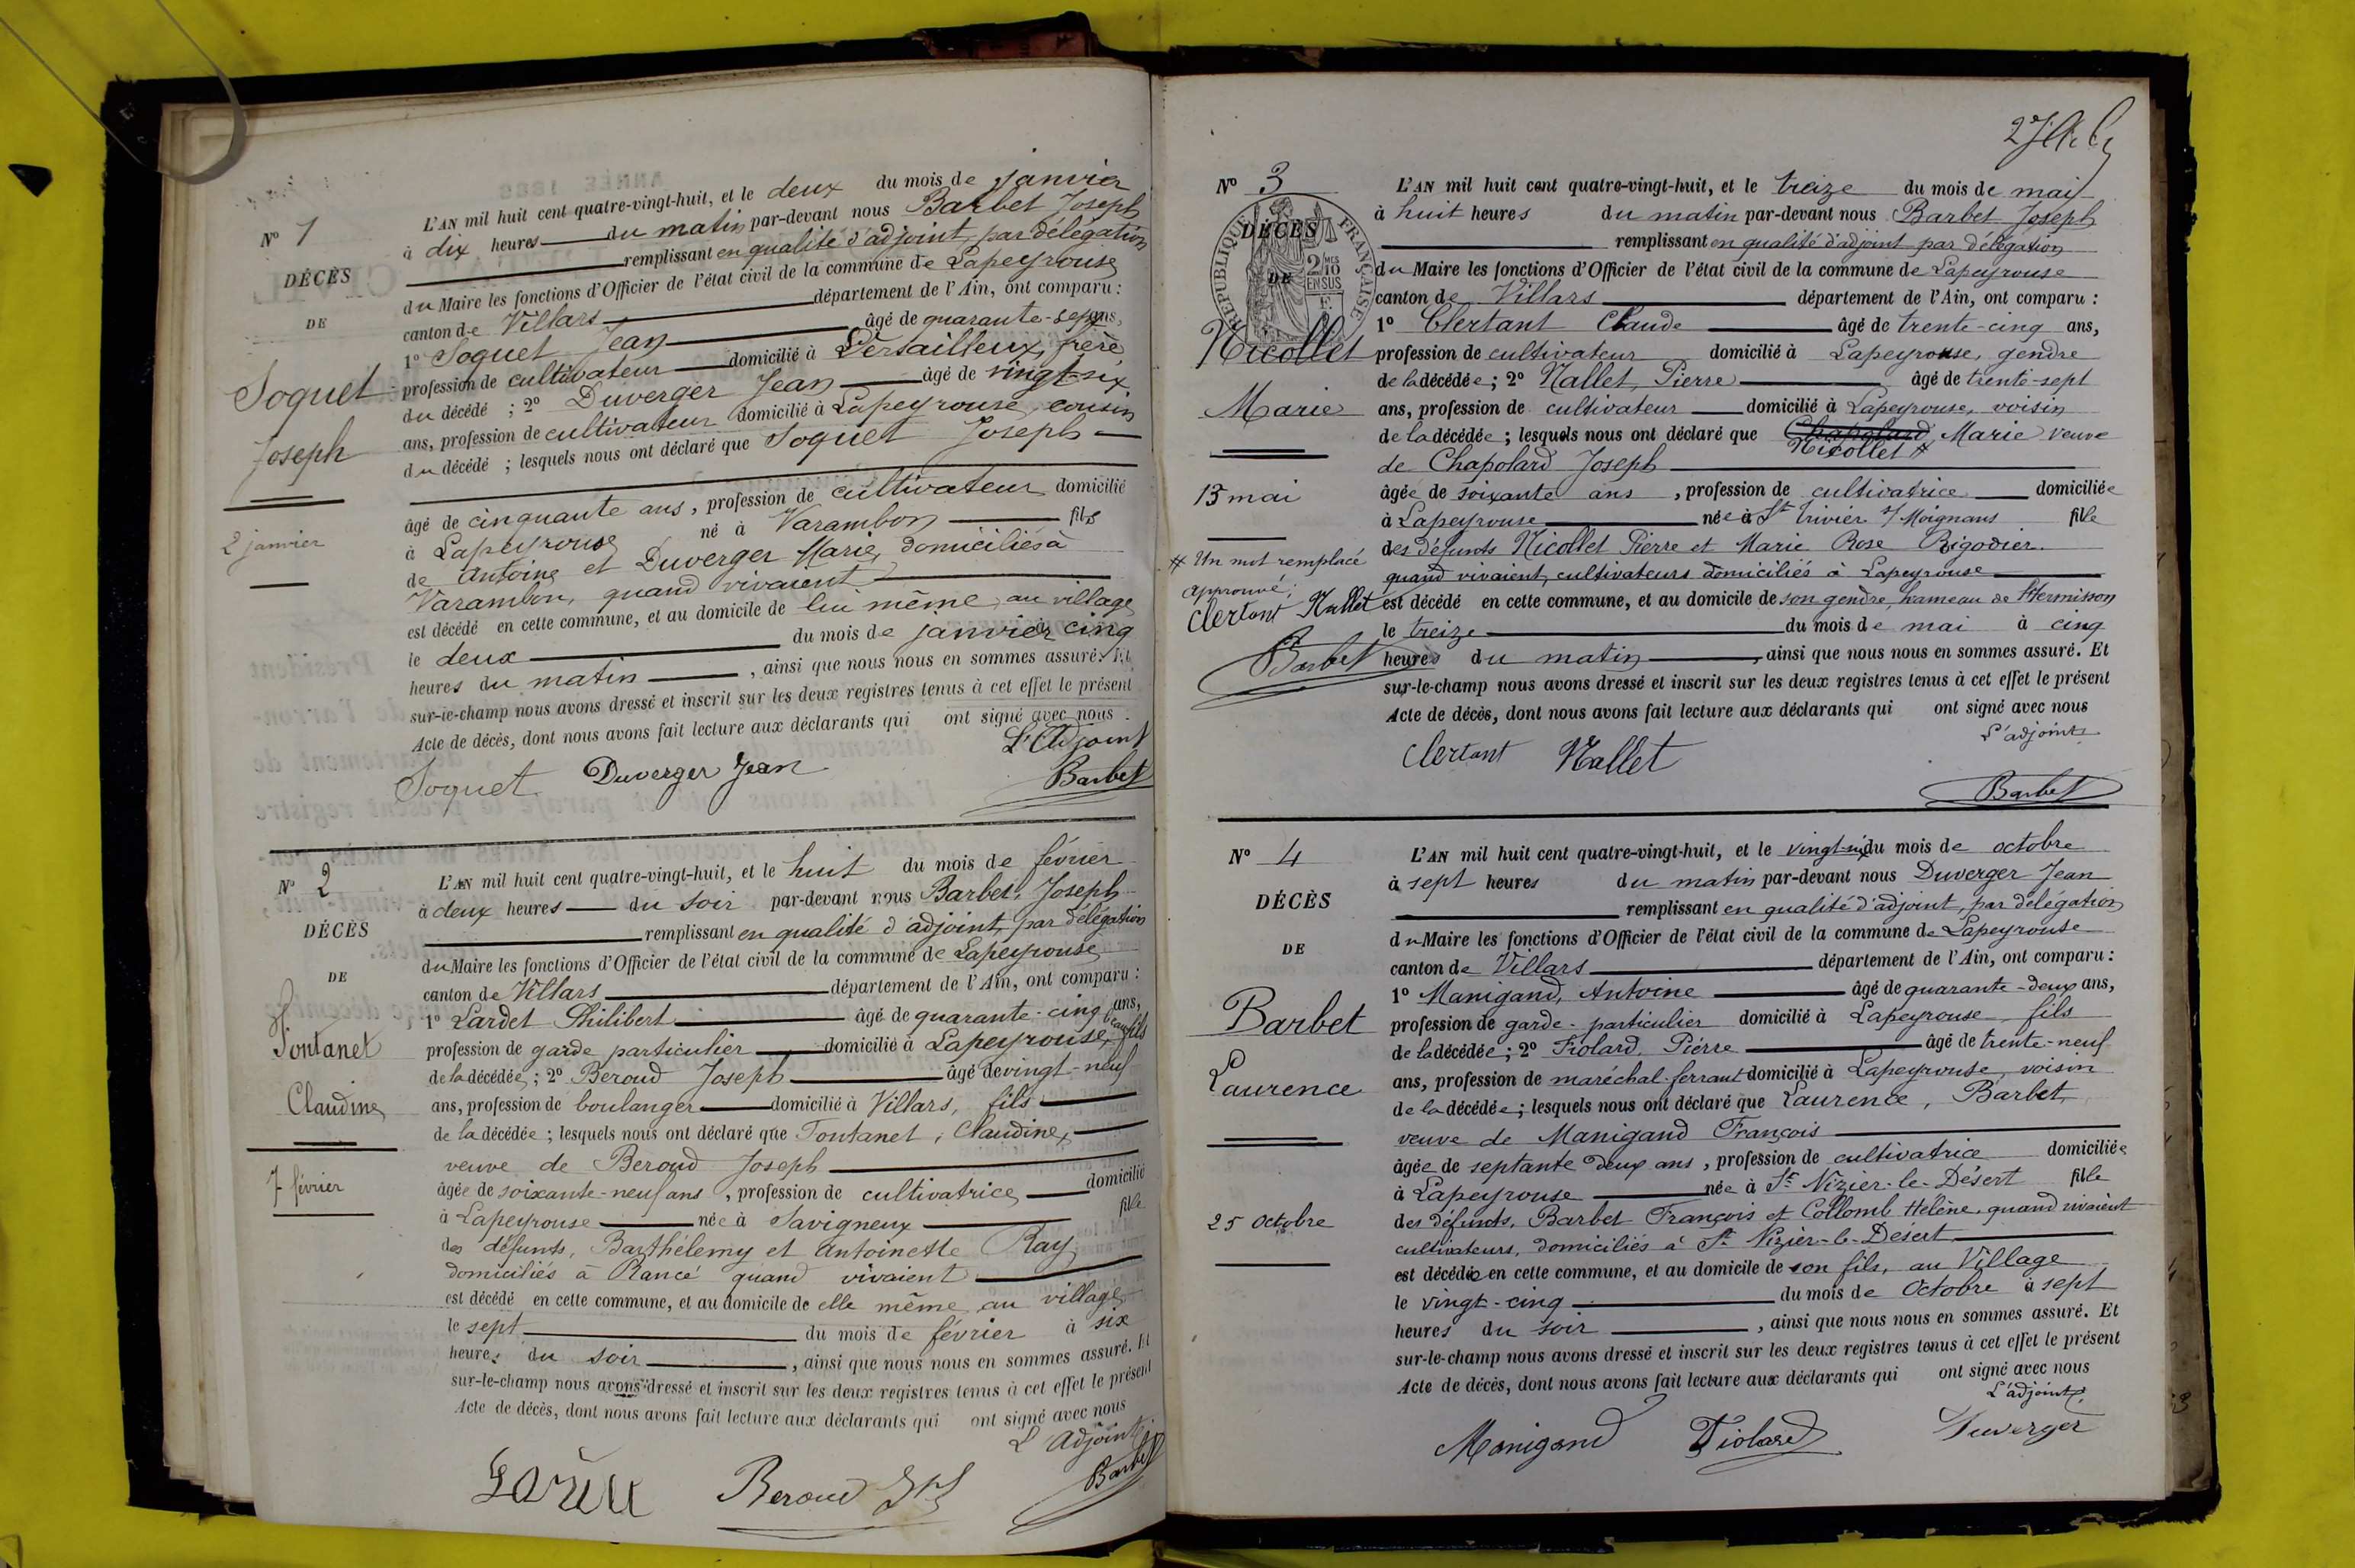 Nº 1
DÉCÈS
DE
Soquet
Joseph
2 janvier
L'AN mil huit cent quatre-vingt-huit, et le deux du mois de janvier
à dix heures du matin par-devant nous Barbet Joseph
remplissant en qualité d'adjoint, par délégation
du Maire les fonctions d'Officier de l'état civil de la commune de Lapeyrouse
canton de Villars département de l'Ain, ont comparu :
1º Soquet Jean âgé de quarante-sept ans,
profession de cultivateur domicilié à Versailleux, frère
du décédé ; 2º Duverger Jean âgé de vingt-six
ans, profession de cultivateur domicilié à Lapeyrouse, cousin
du décédé ; lesquels nous ont déclaré que Soquet Joseph
âgé de cinquante ans, profession de cultivateur domicilié
à Lapeyrouse né à Varambon fils
de Antoine et Duverger Marie, domiciliés à
Varambon, quand vivaient
est décédé en cette commune, et au domicile de lui même, au village
le deux du mois de janvier à cinq
heures du matin, ainsi que nous nous en sommes assuré. Et
sur-le-champ nous avons dressé et inscrit sur les deux registres tenus à cet effet le présent
Acte de décès, dont nous avons fait lecture aux déclarants qui ont signé avec nous.
L'Adjoint
Soquet Duverger Jean Barbet
Nº 2
DÉCÈS
DE
Fontanet
Claudine
7 février
L'AN mil huit cent quatre-vingt-huit, et le huit du mois de février
à deux heures du soir par-devant nous Barbet, Joseph
remplissant en qualité d'adjoint, par délégation
du Maire les fonctions d'Officier de l'état civil de la commune de Lapeyrouse
canton de Villars département de l'Ain, ont comparu :
1º Lardet Philibert âgé de quarante-cinq ans,
profession de garde particulier domicilié à Lapeyrouse, beau fils
de la décédée ; 2º Beroud Joseph âgé de vingt-neuf
ans, profession de boulanger domicilié à Villars, fils
de la décédée ; lesquels nous ont déclaré que Fontanet, Claudine,
veuve de Beroud Joseph
âgée de soixante-neuf ans, profession de cultivatrice domicilié
à Lapeyrouse née à Savigneux fille
des défunts, Barthélemy et Antoinette Ray
domiciliés à Rancé quand vivaient
est décédé en cette commune, et au domicile de elle même au village
le sept du mois de février à six
heures du soir, ainsi que nous nous en sommes assuré. Et
sur-le-champ nous avons dressé et inscrit sur les deux registres tenus à cet effet le présent
Acte de décès, dont nous avons fait lecture aux déclarants qui ont signé avec nous
L'Adjoint
Beroud Barbet
Nº 3
RÉPUBLIQUE FRANÇAISE
DÉCÈS
DE
2 MES 10 EN SUS
Nicollet
Marie
13 mai
# Un mot remplacé
approuvé ;
Clertant Nallet
Barbet
L'AN mil huit cent quatre-vingt-huit, et le treize du mois de mai
à huit heures du matin par-devant nous Barbet Joseph
remplissant en qualité d'adjoint par délégation
du Maire les fonctions d'Officier de l'état civil de la commune de Lapeyrouse
canton de Villars département de l'Ain, ont comparu :
1º Clertant Claude âgé de trente-cinq ans,
profession de cultivateur domicilié à Lapeyrouse, gendre
de la décédée ; 2º Nallet, Pierre âgé de trente-sept
ans, profession de cultivateur domicilié à Lapeyrouse, voisin
de la décédée ; lesquels nous ont déclaré que Chapolard Marie veuve
Nicollet #
de Chapolard Joseph
âgée de soixante ans, profession de cultivatrice domiciliée
à Lapeyrouse née à St Trivier s/ Moignans fille
des défunts Nicollet Pierre et Marie Rose Rigodier.
quand vivaient, cultivateurs domiciliés à Lapeyrouse
est décédé en cette commune, et au domicile de son gendre, hameau de
le treize du mois de mai à cinq
heures du matin, ainsi que nous nous en sommes assuré. Et
sur-le-champ nous avons dressé et inscrit sur les deux registres tenus à cet effet le présent
Acte de décès, dont nous avons fait lecture aux déclarants qui ont signé avec nous
L'adjoint
Clertant Nallet
Barbet
Nº 4
DÉCÈS
DE
Barbet
Laurence
25 Octobre
L'AN mil huit cent quatre-vingt-huit, et le vingt-six du mois de octobre
à sept heures du matin par-devant nous Duverger Jean
remplissant en qualité d'adjoint, par délégation
du Maire les fonctions d'Officier de l'état civil de la commune de Lapeyrouse
canton de Villars département de l'Ain, ont comparu :
1º Manigand, Antoine âgé de quarante-deux ans,
profession de garde-particulier domicilié à Lapeyrouse, fils
de la décédée ; 2º Fiolard, Pierre âgé de trente-neuf
ans, profession de maréchal-ferrant domicilié à Lapeyrouse, voisin
de la décédée ; lesquels nous ont déclaré que Laurence, Barbet,
veuve de Manigand François
âgée de septante deux ans, profession de cultivatrice domiciliée
à Lapeyrouse née à St Nizier-le-Désert fille
des défunts, Barbet François et Collomb Hélène, quand vivaient
cultivateurs, domiciliés à St Nizier-le-Désert
est décédée en cette commune, et au domicile de son fils, au Village
le vingt-cinq du mois de Octobre à sept
heures du soir, ainsi que nous nous en sommes assuré. Et
sur-le-champ nous avons dressé et inscrit sur les deux registres tenus à cet effet le présent
Acte de décès, dont nous avons fait lecture aux déclarants qui ont signé avec nous
L'adjoint,
Manigand Fiolard Duverger